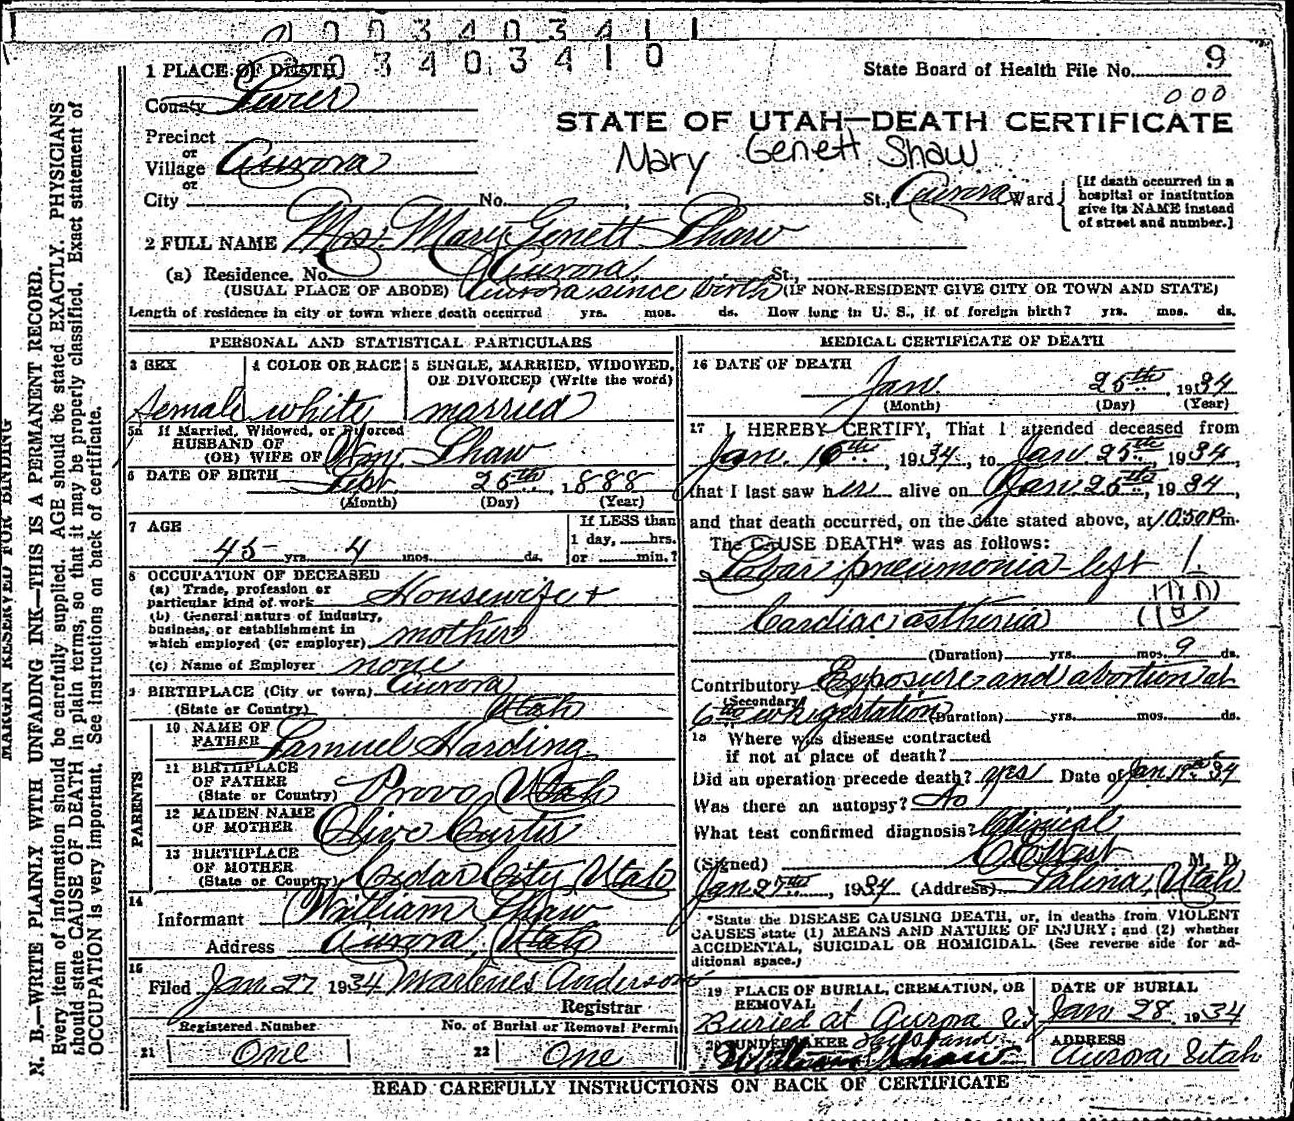 0 0 3 4 0 3 4 1 1
0 3 4 0 3 4 1 0
1 PLACE OF DEATH
State Board of Health File No. 9
000
County Sevier
STATE OF UTAH—DEATH CERTIFICATE
Mary Genett Shaw
Precinct
or
Village Aurora
or
City No. St., Aurora Ward
[If death occurred in a hospital or institution give its NAME instead of street and number.]
2 FULL NAME Mrs. Mary Genett Shaw
(a) Residence. No. Aurora St.
(USUAL PLACE OF ABODE) Aurora since birth (IF NON-RESIDENT GIVE CITY OR TOWN AND STATE)
Length of residence in city or town where death occurred yrs. mos. ds. How long in U. S., if of foreign birth? yrs. mos. ds.
PERSONAL AND STATISTICAL PARTICULARS
3 SEX female
4 COLOR OR RACE white
5 SINGLE, MARRIED, WIDOWED, OR DIVORCED (Write the word) married
5a If Married, Widowed, or Divorced
HUSBAND OF
(OR) WIFE OF Wm. Shaw
6 DATE OF BIRTH Sept. 25th, 1888
(Month) (Day) (Year)
7 AGE
45 yrs. 4 mos. ds.
If LESS than
1 day, hrs.
or min.?
8 OCCUPATION OF DECEASED
(a) Trade, profession or
particular kind of work Housewife +
(b) General nature of industry,
business, or establishment in
which employed (or employer) mother
(c) Name of Employer none
9 BIRTHPLACE (City or town) Aurora
(State or Country) Utah
PARENTS
10 NAME OF
FATHER Samuel Harding
11 BIRTHPLACE
OF FATHER
(State or Country) Provo, Utah
12 MAIDEN NAME
OF MOTHER Olive Curtis
13 BIRTHPLACE
OF MOTHER
(State or Country) Cedar City, Utah
14
Informant William Shaw
Address Aurora, Utah
15
Filed Jan 27 1934 Anderson
Registrar
Registered Number
21 One
No. of Burial or Removal Permit
22 One
MEDICAL CERTIFICATE OF DEATH
16 DATE OF DEATH
Jan. 25th, 1934
(Month) (Day) (Year)
17 I HEREBY CERTIFY, That I attended deceased from
Jan. 16th, 1934, to Jan. 25th, 1934,
that I last saw her alive on Jan. 25th, 1934,
and that death occurred, on the date stated above, at 10:50 P.m.
The CAUSE DEATH* was as follows:
Lobar pneumonia left
Cardiac asthenia
(Duration) yrs. mos. 9 ds.
Contributory Exposure and abortion at
(Secondary)
6th wk gestation (Duration) yrs. mos. ds.
18 Where was disease contracted
if not at place of death?
Did an operation precede death? yes Date of Jan 34
Was there an autopsy? No
What test confirmed diagnosis? Clinical
(Signed) M. D.
Jan 27th, 1934 (Address) Salina, Utah
*State the DISEASE CAUSING DEATH, or, in deaths from VIOLENT
CAUSES state (1) MEANS AND NATURE OF INJURY; and (2) whether
ACCIDENTAL, SUICIDAL OR HOMICIDAL. (See reverse side for ad-
ditional space.)
19 PLACE OF BURIAL, CREMATION, OR
REMOVAL
Buried at Aurora
DATE OF BURIAL
Jan 28 1934
20 UNDERTAKER husband
William Shaw
ADDRESS
Aurora Utah
READ CAREFULLY INSTRUCTIONS ON BACK OF CERTIFICATE
MARGIN RESERVED FOR BINDING
N. B.—WRITE PLAINLY WITH UNFADING INK—THIS IS A PERMANENT RECORD.
Every item of information should be carefully supplied. AGE should be stated EXACTLY. PHYSICIANS
should state CAUSE OF DEATH in plain terms, so that it may be properly classified. Exact statement of
OCCUPATION is very important. See instructions on back of certificate.